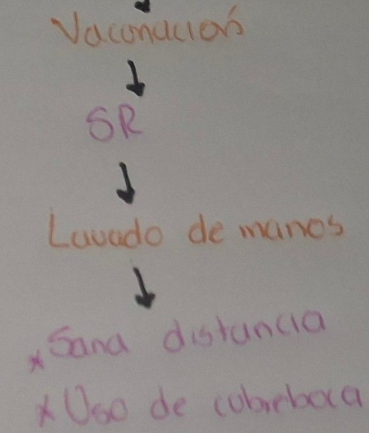 Vacunación
↓
SR
↓
Lavado de manos
↓
*Sana distancia
*Uso de cubreboca